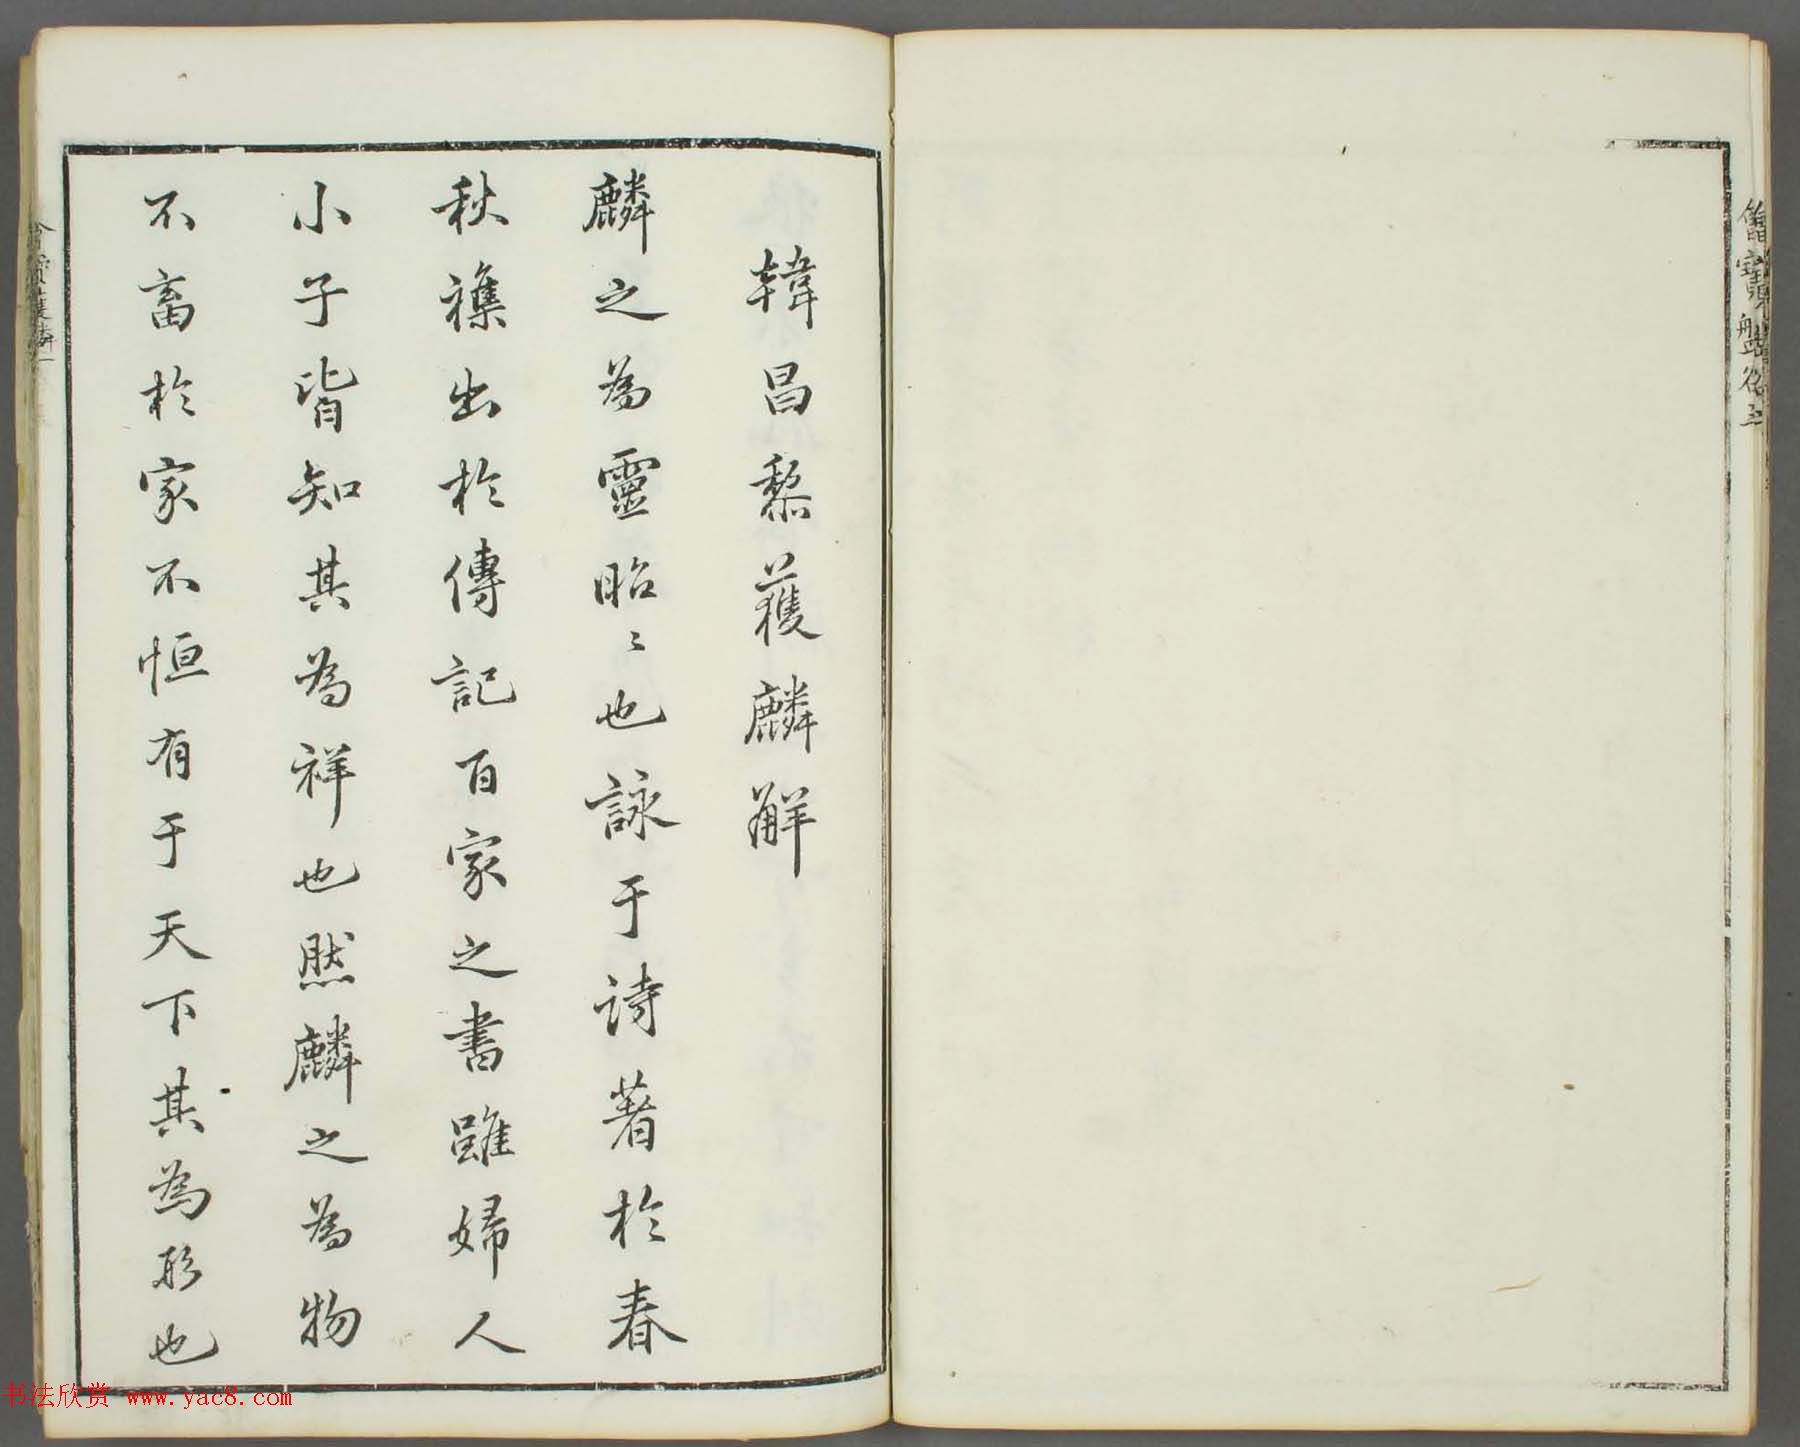 韓昌黎獲麟解
麟之為靈昭〻也詠于詩著於春
秋襍出於傳記百家之書雖婦人
小子皆知其為祥也然麟之為物
不畜於家不恒有于天下其為形也
书法欣赏 www.yac8.com